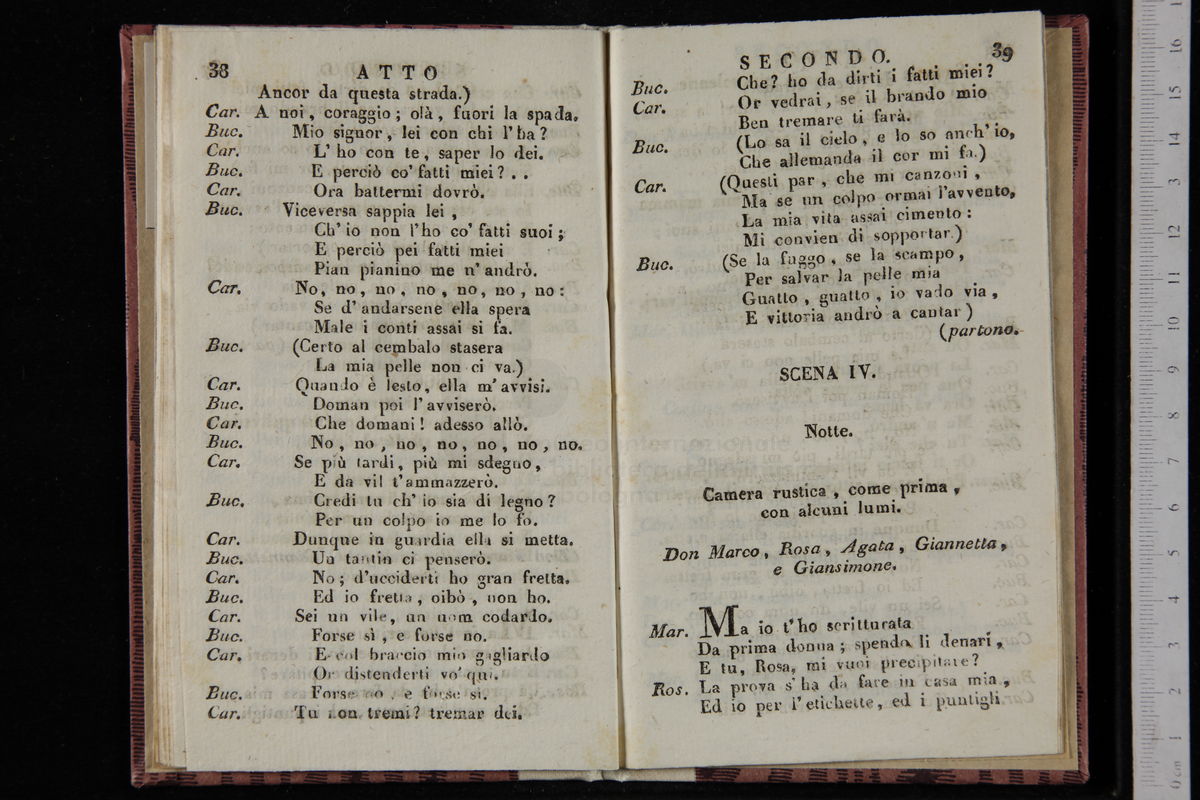 38
ATTO
Ancor da questa strada.)
Car. A noi, coraggio; olà, fuori la spada.
Buc. Mio signor, lei con chi l'ha?
Car. L'ho con te, saper lo dei.
Buc. E perciò co' fatti miei? . .
Car. Ora battermi dovrò.
Buc. Viceversa sappia lei,
Ch' io non l'ho co' fatti suoi;
E perciò pei fatti miei
Pian pianino me n' andrò.
Car. No, no, no, no, no, no, no:
Se d' andarsene ella spera
Male i conti assai si fa.
Buc. (Certo al cembalo stasera
La mia pelle non ci va.)
Car. Quando è lesto, ella m' avvisi.
Buc. Doman poi l' avviserò.
Car. Che domani! adesso allò.
Buc. No, no, no, no, no, no, no.
Car. Se più tardi, più mi sdegno,
E da vil t'ammazzerò.
Buc. Credi tu ch' io sia di legno?
Per un colpo io me lo fo.
Car. Dunque in guardia ella si metta.
Buc. Un tantin ci penserò.
Car. No; d'ucciderti ho gran fretta.
Buc. Ed io fretta, oibò, non ho.
Car. Sei un vile, un uom codardo.
Buc. Forse sì, e forse no.
Car. E col braccio mio gagliardo
Or distenderti vo' qui.
Buc. Forse no, e forse sì.
Car. Tu non tremi? tremar dei.
SECONDO.
39
Buc. Che? ho da dirti i fatti miei?
Car. Or vedrai, se il brando mio
Ben tremare ti farà.
Buc. (Lo sa il cielo, e lo so anch' io,
Che allemanda il cor mi fa.)
Car. (Questi par, che mi canzoni,
Ma se un colpo ormai l'avvento,
La mia vita assai cimento:
Mi convien di sopportar.)
Buc. (Se la fuggo, se la scampo,
Per salvar la pelle mia
Guatto, guatto, io vado via,
E vittoria andrò a cantar)
(partono.
SCENA IV.
Notte.
Camera rustica, come prima,
con alcuni lumi.
Don Marco, Rosa, Agata, Giannetta,
e Giansimone.
Mar. Ma io t'ho scritturata
Da prima donna; spendo li denari,
E tu, Rosa, mi vuoi precipitare?
Ros. La prova s' ha da fare in casa mia,
Ed io per l' etichette, ed i puntigli